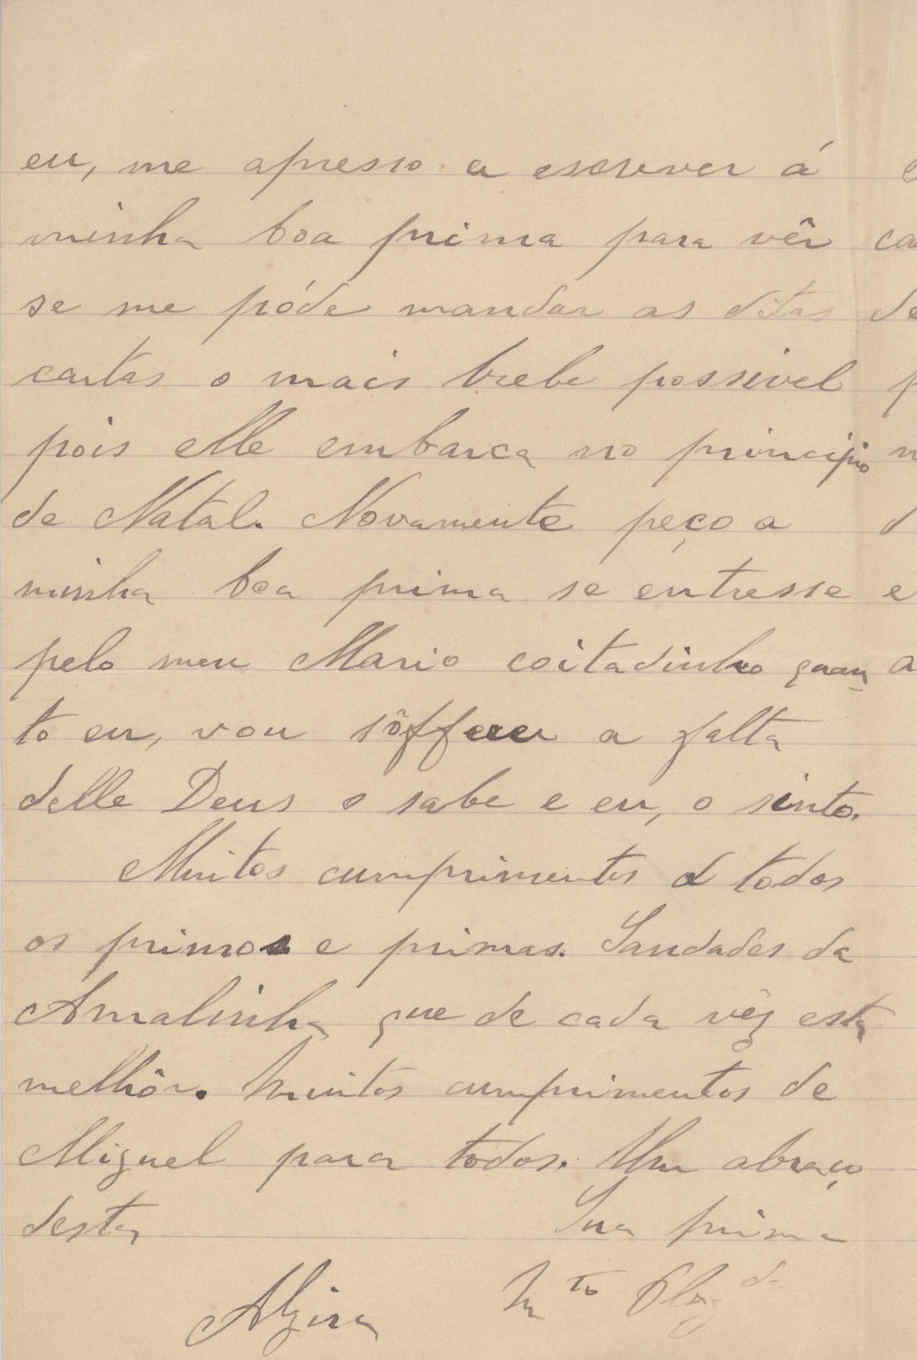 eu, me apresso a escrever á
minha boa prima para vêr
se me póde mandar as ditas
cartas o mais brebe possivel
pois elle embarca no principio
de Natal. Novamente peço a
minha boa prima se entresse
pelo meu Mario coitadinho quan
to eu, vou sôffrer a falta
delle Deus o sabe e eu, o sinto.
Muitos cumprimentos a todos
os primos e primas. Saudades da
Amalinha que de cada vêz está
melhôr. Muitos cumprimentos de
Miguel para todos. Um abraço
desta Sua prima
Alzira Mto Obrgda